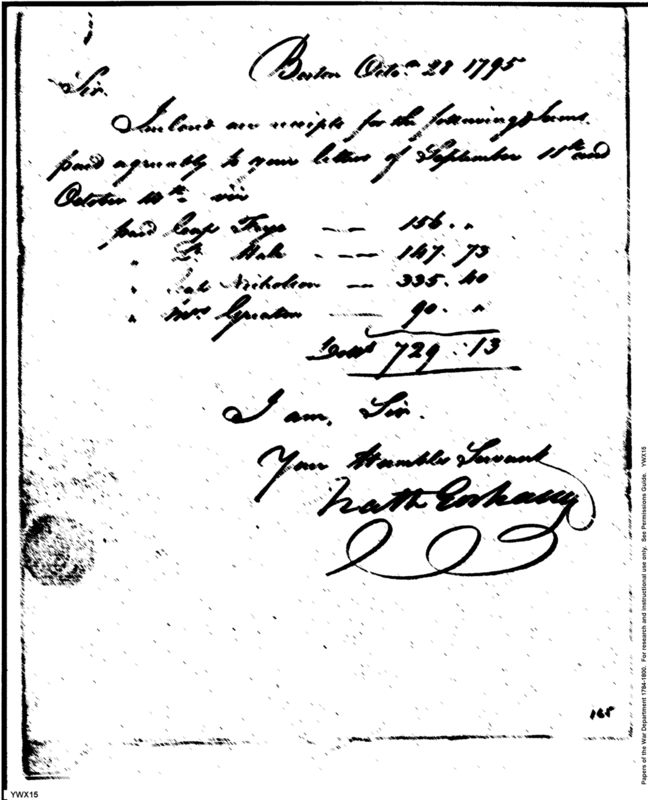 Boston Octo.r 28 1795
Sir.
Inclosd are receipts for the following Sums.
paid agreably to your letters of September 11th and
October 14th viz
paid Capt Frye — — 156 . „
„ Lt Hale - — — 147. 73
„ Nicholson — 335. 40
„ Mrs Greaton — — 90. „
Dolls 729 . 13
I am, Sir.
Your Humble Servant
Nath
165
YWX15
Papers of the War Department 1784-1800. For research and instructional use only. See Permissions Guide. YWX15